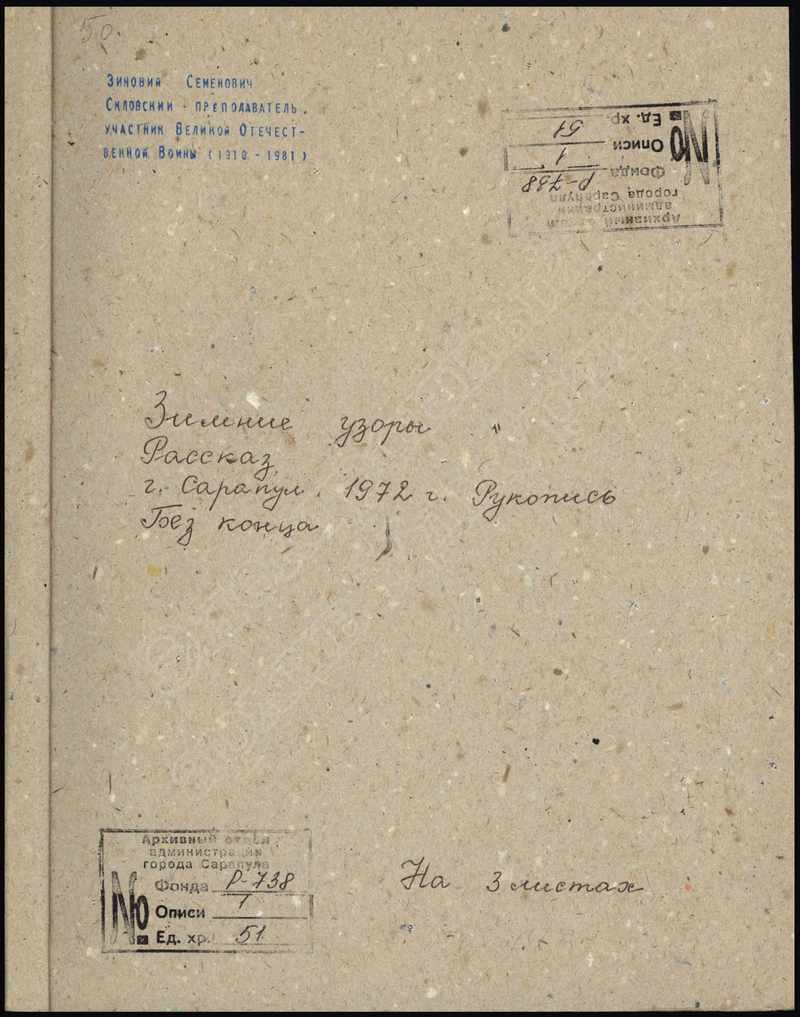 50.
Зиновий Семенович
Скловский - преподаватель,
участник Великой Отечест-
венной Войны (1910 - 1981)
Архивный отдел
администрации
города Сарапула
Фонда Р-738
№ Описи 1
Ед. хр. 51
Зимние узоры "
Рассказ
г. Сарапул. 1972 г. Рукопись
Без конца
Архивный отдел
администрации
города Сарапула
Фонда Р-738
№ Описи 1
Ед. хр. 51
На 3 листах